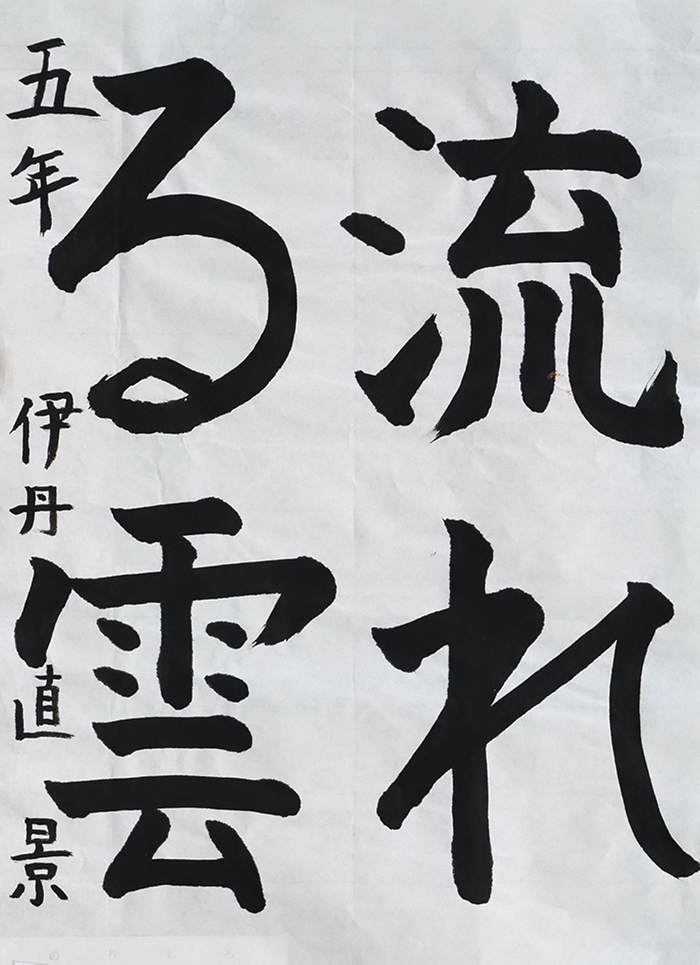 流れ
る雲
五年 伊丹直景